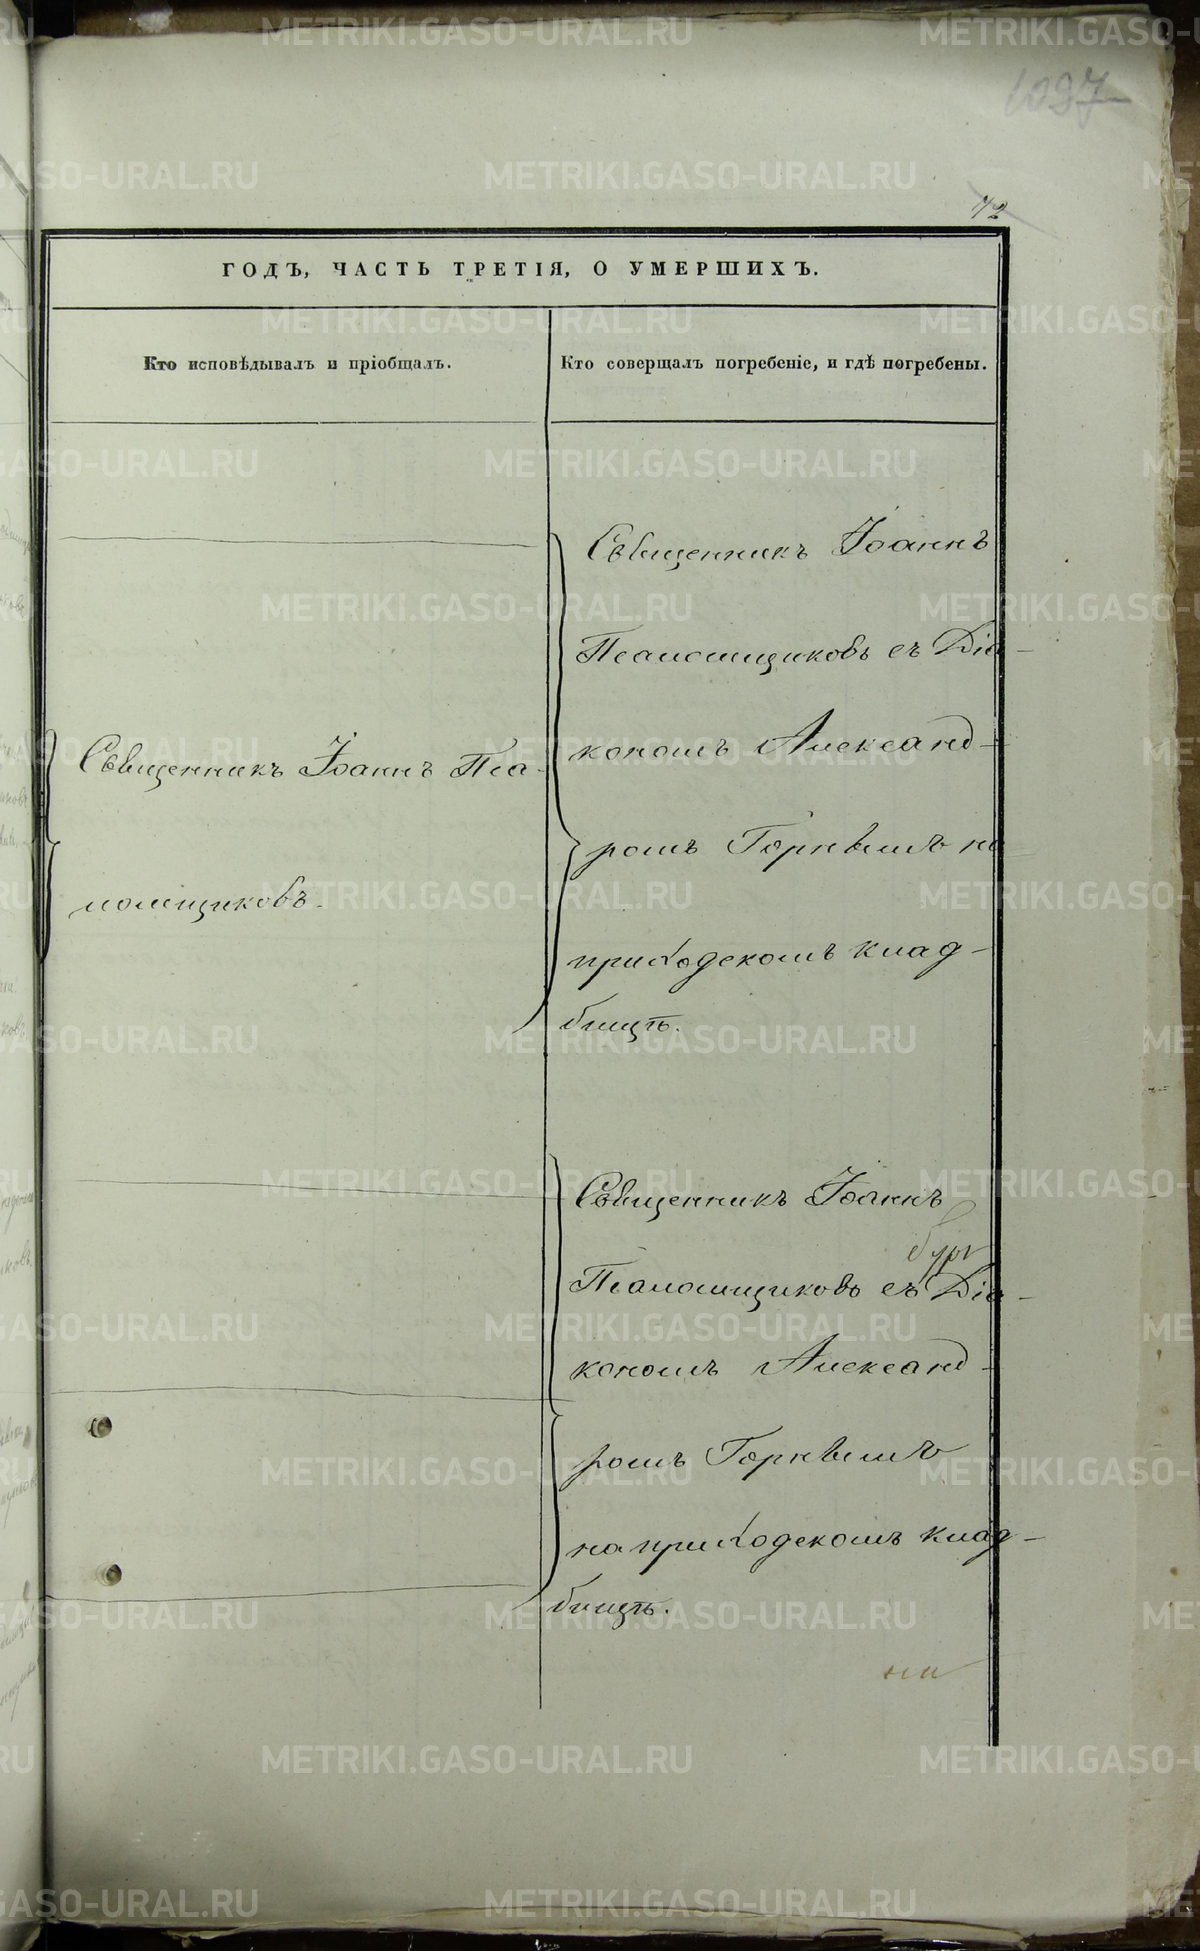 1097
72
ГОДЪ, ЧАСТЬ ТРЕТІЯ, О УМЕРШИХЪ.
Кто исповѣдывалъ и пріобщалъ.
Кто совершалъ погребеніе, и гдѣ погребены.
Священникъ Іоаннъ Пса-
ломщиковъ.
Священникъ Іоаннъ
Псаломщиковъ съ Діа-
кономъ Александ-
ромъ Горнымъ на
приходскомъ клад-
бищѣ.
Священникъ Іоаннъ
Псаломщиковъ съ Діа-
кономъ Александ-
ромъ
на приходскомъ клад-
бищѣ.
METRIKI.GASO-URAL.RU